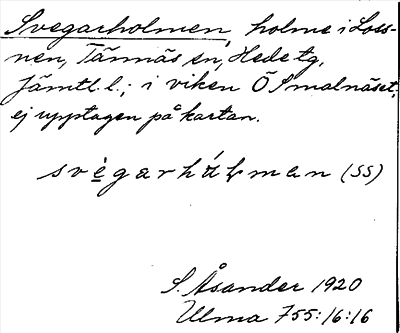 Svegarholmen, holme i Loss-
nen, Tännäs sn, Hede tg,
Jämtl. l.; i viken Ö Smalnäset;
ej upptagen på kartan.
svègarhálman (SS)
S. Åsander 1920
Ulma 755:16:16